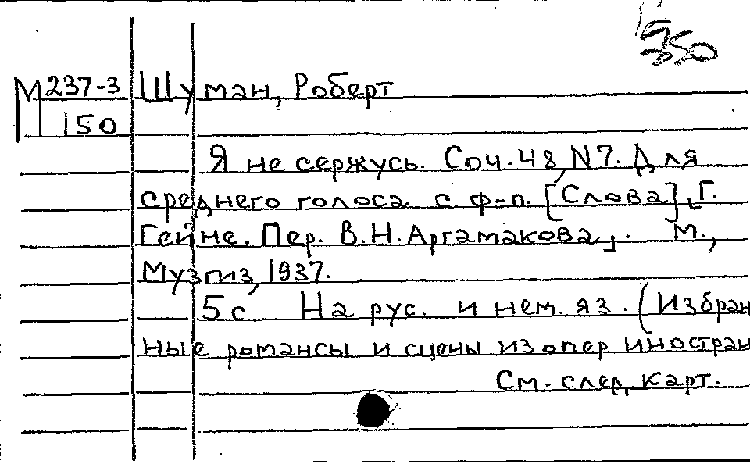 М 237-3
150
Шуман, Роберт
Я не сержусь. Соч. 48, N7. Для
среднего голоса с ф-п. [Слова] Г.
Гейне. Пер. В.Н. Аргамакова. М.,
Музгиз, 1937.
5 с. На рус. и нем. яз. (Избран
ные романсы и сцены из опер иностран
См. след. карт.